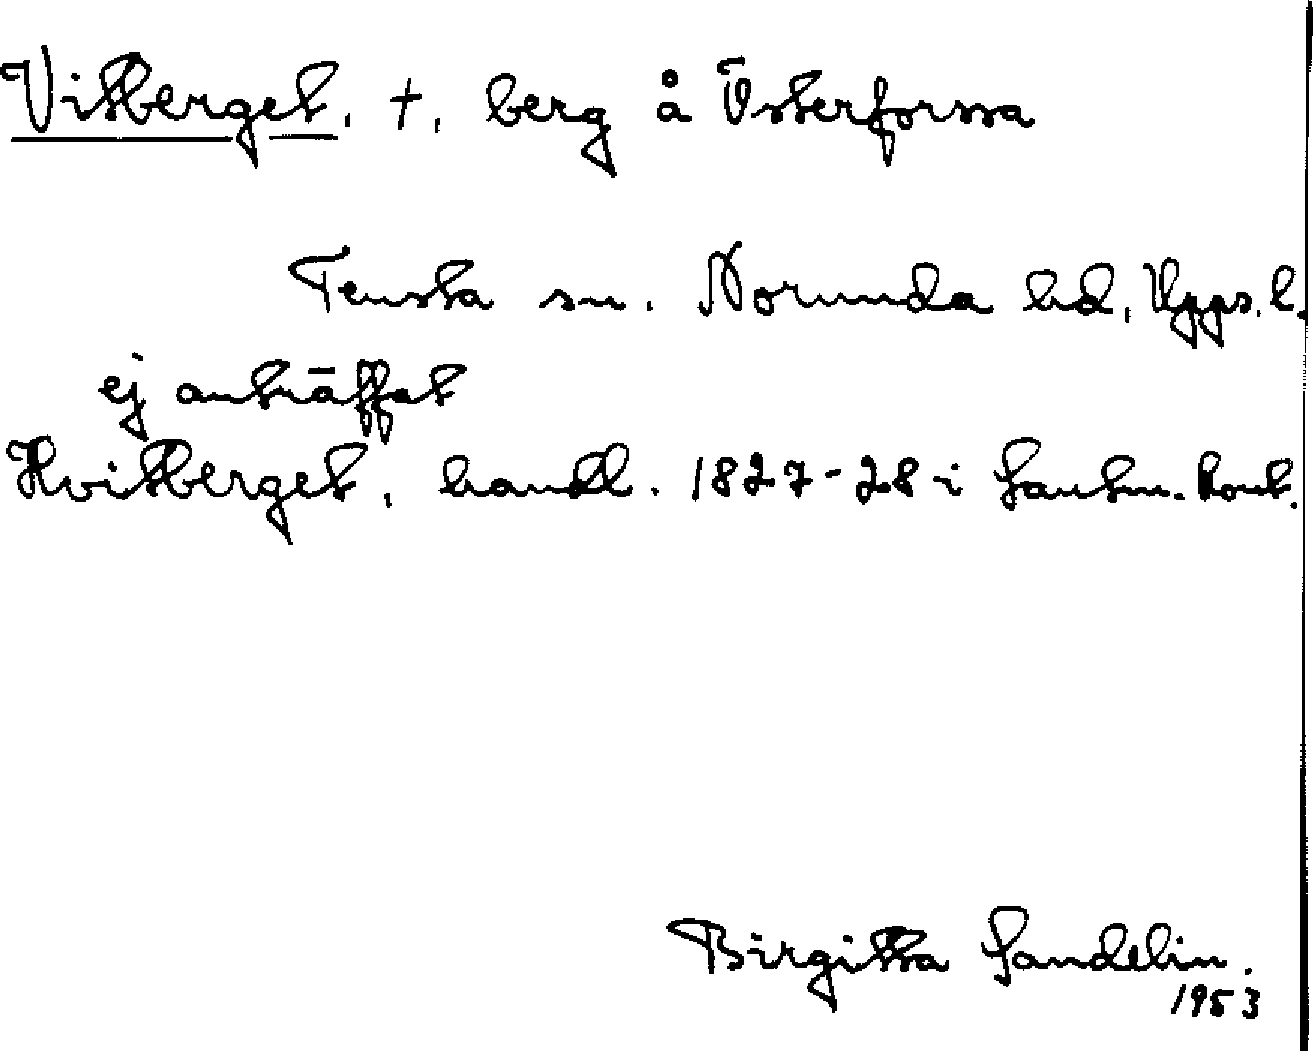 Vitberget, †, berg å Österforssa
Tensta sn. Norunda hd, Upps. l.
ej anträffat
Hvitberget, handl. 1827-28 i Lantm. kont.
Birgitta Sandelin.
1953